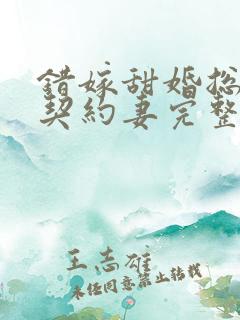 错嫁甜婚总
契约妻完整
王志雄
未经同意禁止转载